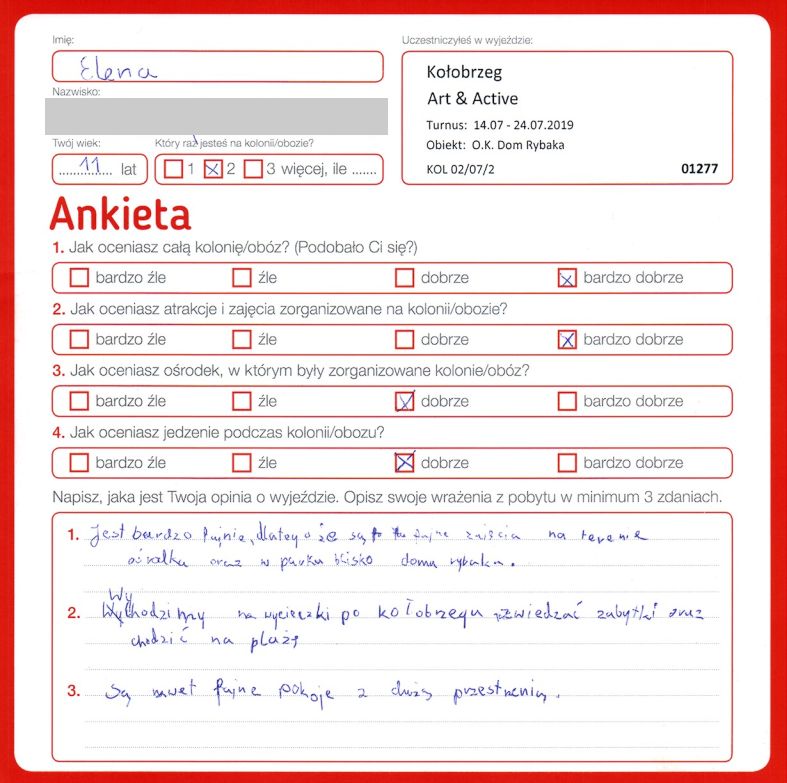 Imię:
Elena
Nazwisko:
Twój wiek:
11 lat
Który raz jesteś na kolonii/obozie?
1 2 3 więcej, ile .......
Uczestniczyłeś w wyjeździe:
Kołobrzeg
Art & Active
Turnus: 14.07 - 24.07.2019
Obiekt: O.K. Dom Rybaka
KOL 02/07/2 01277
Ankieta
1. Jak oceniasz całą kolonię/obóz? (Podobało Ci się?)
bardzo źle źle dobrze bardzo dobrze
2. Jak oceniasz atrakcje i zajęcia zorganizowane na kolonii/obozie?
bardzo źle źle dobrze bardzo dobrze
3. Jak oceniasz ośrodek, w którym były zorganizowane kolonie/obóz?
bardzo źle źle dobrze bardzo dobrze
4. Jak oceniasz jedzenie podczas kolonii/obozu?
bardzo źle źle dobrze bardzo dobrze
Napisz, jaka jest Twoja opinia o wyjeździe. Opisz swoje wrażenia z pobytu w minimum 3 zdaniach.
1. Jest bardzo fajnie, dlatego że są fajne zajęcia na terenie
ośrodka oraz w parku blisko domu rybaka.
2. Wychodzimy na wycieczki po kołobrzegu zwiedzać zabytki oraz
chodzić na plażę
3. Są nawet fajne pokoje z dużą przestrzenią.